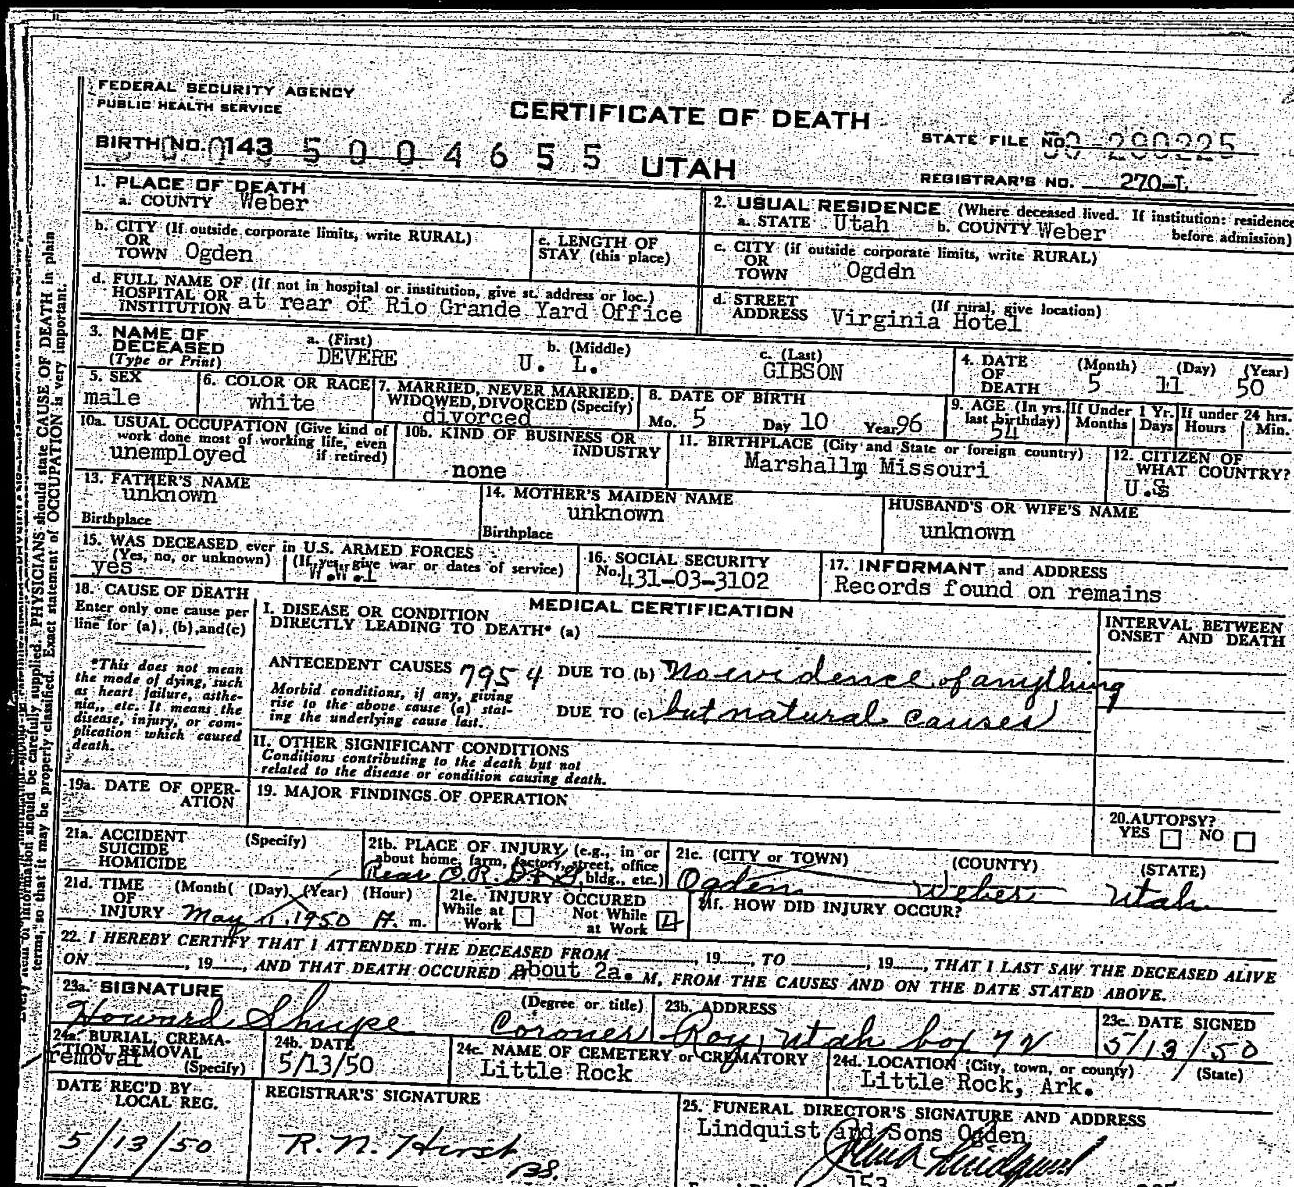 FEDERAL SECURITY AGENCY
PUBLIC HEALTH SERVICE
CERTIFICATE OF DEATH
UTAH
BIRTH NO. 0143 5004655
STATE FILE NO. 50 290225
REGISTRAR'S NO. 270-L
1. PLACE OF DEATH
a. COUNTY Weber
2. USUAL RESIDENCE (Where deceased lived. If institution: residence before admission)
a. STATE Utah b. COUNTY Weber
b. CITY (If outside corporate limits, write RURAL)
OR
TOWN Ogden
c. LENGTH OF
STAY (this place)
c. CITY (if outside corporate limits, write RURAL)
OR
TOWN Ogden
d. FULL NAME OF (If not in hospital or institution, give st. address or loc.)
HOSPITAL OR
INSTITUTION at rear of Rio Grande Yard Office
d. STREET (If rural, give location)
ADDRESS Virginia Hotel
3. NAME OF
DECEASED
(Type or Print)
a. (First)
DEVERE
b. (Middle)
U. L.
c. (Last)
GIBSON
4. DATE
OF
DEATH
(Month) (Day) (Year)
5 11 50
5. SEX
male
6. COLOR OR RACE
white
7. MARRIED, NEVER MARRIED,
WIDOWED, DIVORCED (Specify)
divorced
8. DATE OF BIRTH
Mo. 5 Day 10 Year 96
9. AGE (In yrs.
last birthday)
54
If Under 1 Yr.
Months Days
If under 24 hrs.
Hours Min.
10a. USUAL OCCUPATION (Give kind of
work done most of working life, even
if retired)
unemployed
10b. KIND OF BUSINESS OR
INDUSTRY
none
11. BIRTHPLACE (City and State or foreign country)
Marshallm Missouri
12. CITIZEN OF
WHAT COUNTRY?
U.S
13. FATHER'S NAME
unknown
Birthplace
14. MOTHER'S MAIDEN NAME
unknown
Birthplace
HUSBAND'S OR WIFE'S NAME
unknown
15. WAS DECEASED ever in U.S. ARMED FORCES
(Yes, no, or unknown) (If yes, give war or dates of service)
yes W.W.I
16. SOCIAL SECURITY
No. 431-03-3102
17. INFORMANT and ADDRESS
Records found on remains
18. CAUSE OF DEATH
Enter only one cause per
line for (a), (b), and (c)
*This does not mean
the mode of dying, such
as heart failure, asthe-
nia, etc. It means the
disease, injury, or com-
plication which caused
death.
MEDICAL CERTIFICATION
I. DISEASE OR CONDITION
DIRECTLY LEADING TO DEATH* (a)
ANTECEDENT CAUSES 7954 DUE TO (b) No evidence of anything
Morbid conditions, if any, giving
rise to the above cause (a) stat-
ing the underlying cause last.
DUE TO (c) but natural causes
II. OTHER SIGNIFICANT CONDITIONS
Conditions contributing to the death but not
related to the disease or condition causing death.
INTERVAL BETWEEN
ONSET AND DEATH
19a. DATE OF OPER-
ATION
19. MAJOR FINDINGS OF OPERATION
20. AUTOPSY?
YES NO
21a. ACCIDENT
SUICIDE
HOMICIDE
(Specify)
21b. PLACE OF INJURY (e.g., in or
about home, farm, factory, street, office
bldg., etc.)
Rear
21c. (CITY or TOWN) (COUNTY) (STATE)
Ogden Weber Utah
21d. TIME (Month) (Day) (Year) (Hour)
OF
INJURY May 11, 1950 A. m.
21e. INJURY OCCURED
While at
Work
Not While
at Work
21f. HOW DID INJURY OCCUR?
22. I HEREBY CERTIFY THAT I ATTENDED THE DECEASED FROM , 19 , TO , 19 , THAT I LAST SAW THE DECEASED ALIVE
ON , 19 , AND THAT DEATH OCCURED about 2a. M, FROM THE CAUSES AND ON THE DATE STATED ABOVE.
23a. SIGNATURE (Degree or title)
Howard Shupe Coroner
23b. ADDRESS
Roy, Utah box 72
23c. DATE SIGNED
5/13/50
24a. BURIAL, CREMA-
TION REMOVAL
(Specify)
removal
24b. DATE
5/13/50
24c. NAME OF CEMETERY or CREMATORY
Little Rock
24d. LOCATION (City, town, or county) (State)
Little Rock, Ark.
DATE REC'D BY
LOCAL REG.
5/13/50
REGISTRAR'S SIGNATURE
R. N. Hirst
25. FUNERAL DIRECTOR'S SIGNATURE AND ADDRESS
Lindquist and Sons Ogden
153
supplied. PHYSICIANS should state CAUSE OF DEATH in plain
terms, so that it may be properly classified. Exact statement of OCCUPATION is very important.